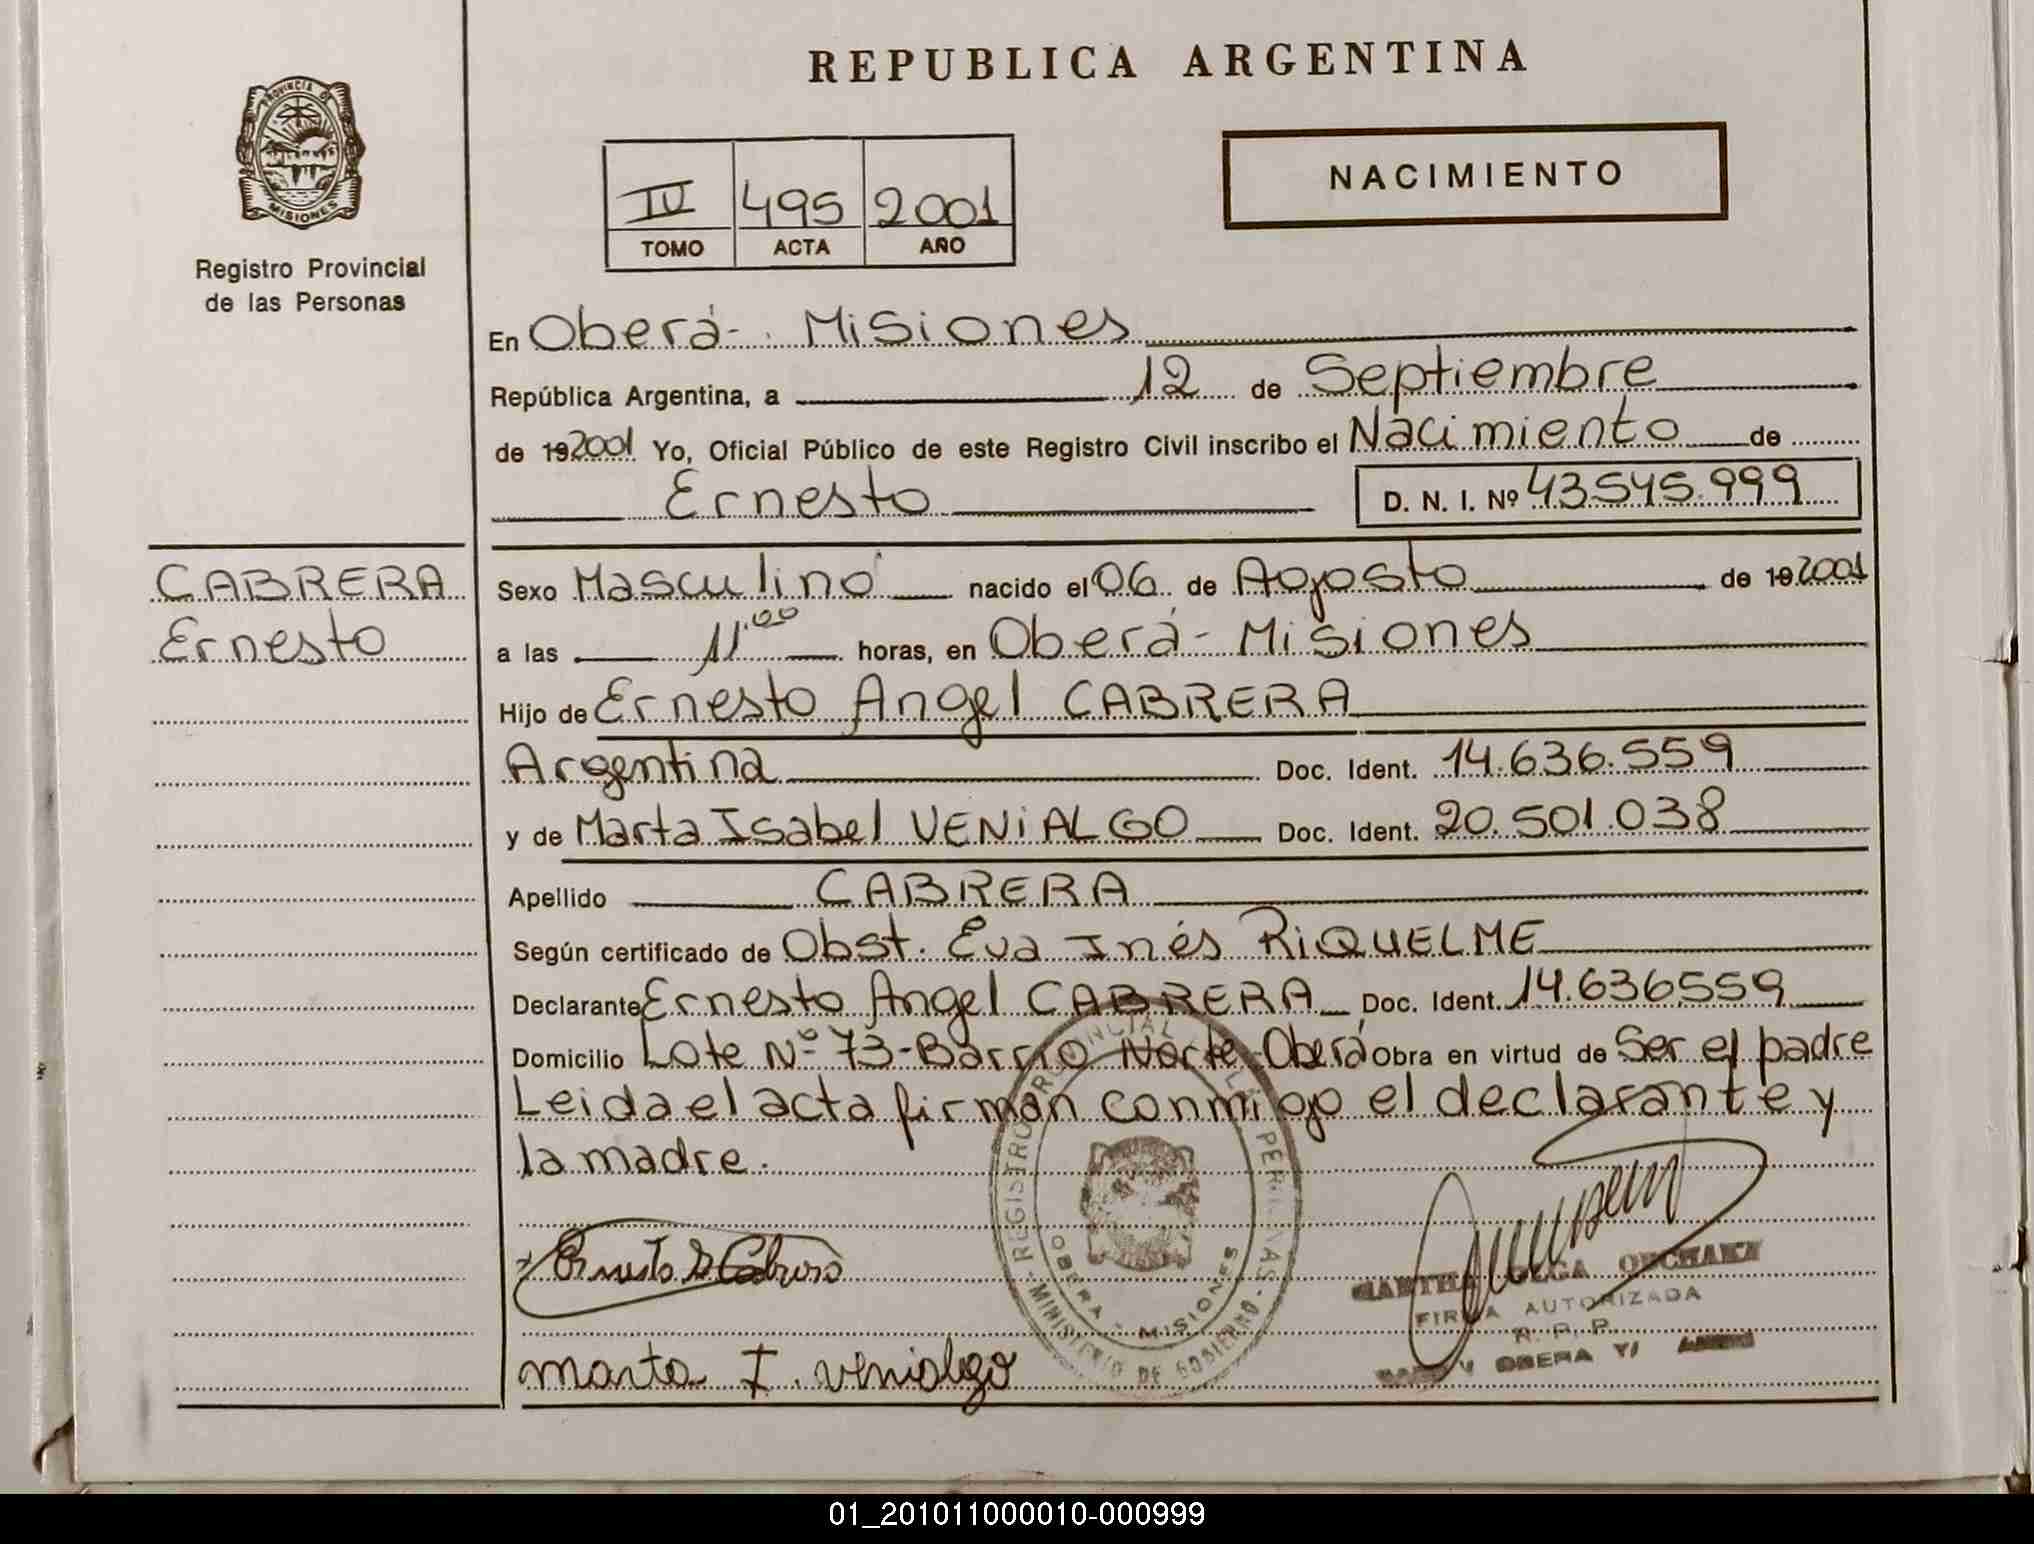 REPUBLICA ARGENTINA
PROVINCIA DE
MISIONES
Registro Provincial
de las Personas
IV 495 2001
TOMO ACTA AÑO
NACIMIENTO
En Oberá - Misiones
República Argentina, a 12 de Septiembre
de 192001 Yo, Oficial Público de este Registro Civil inscribo el Nacimiento de
Ernesto D. N. I. Nº 43.545.999
CABRERA
Ernesto
Sexo Masculino nacido el 06 de Agosto de 192001
a las 11:00 horas, en Oberá - Misiones
Hijo de Ernesto Angel CABRERA
Argentina Doc. Ident. 14.636.559
y de Marta Isabel VENIALGO Doc. Ident. 20.501.038
Apellido CABRERA
Según certificado de Obst. Eva Inés RIQUELME
Declarante Ernesto Angel CABRERA Doc. Ident. 14.636559
Domicilio Lote Nº 73-Barrio Norte-Oberá Obra en virtud de Ser el padre
Leida el acta firman conmigo el declarante y
la madre.
REGISTRO PROVINCIAL PERSONAS
OBERA - MISIONES
MINISTERIO DE GOBIERNO
Ernesto Cabrera
OLGA
FIRMA AUTORIZADA
R. P. P.
OBERA
Marta I. Venialgo
01_201011000010-000999